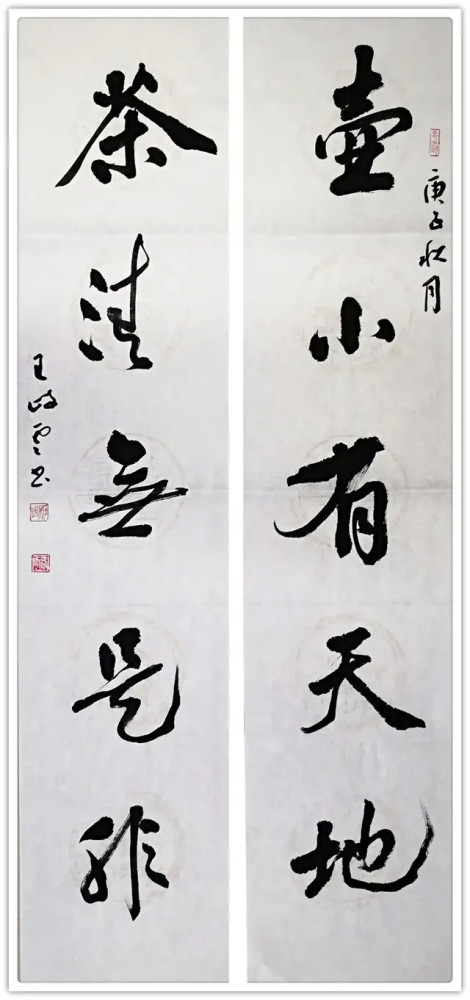 壶小有天地
庚子秋月
茶清無是非
王峙雲书